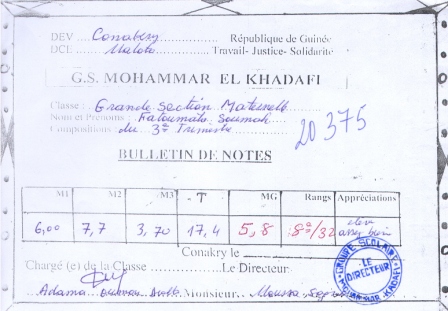 DEV Conakry République de Guinée
DCE Matoto Travail- Justice- Solidarité
G.S. MOHAMMAR EL KHADAFI
Classe : Grande Section Maternelle
Nom et Prénoms : Fatoumata Soumah
Compositions du 3e Trimestre
20 375
BULLETIN DE NOTES
M1 M2 M3 T MG Rangs Appréciations
6,00 7,7 3,70 17,4 5,8 8e/32 élève assez bien
Conakry le
Chargé (e) de la Classe Le Directeur
Adama Monsieur Moussa
GROUPE SCOLAIRE
LE DIRECTEUR
MOHAMMAR KHADAFI